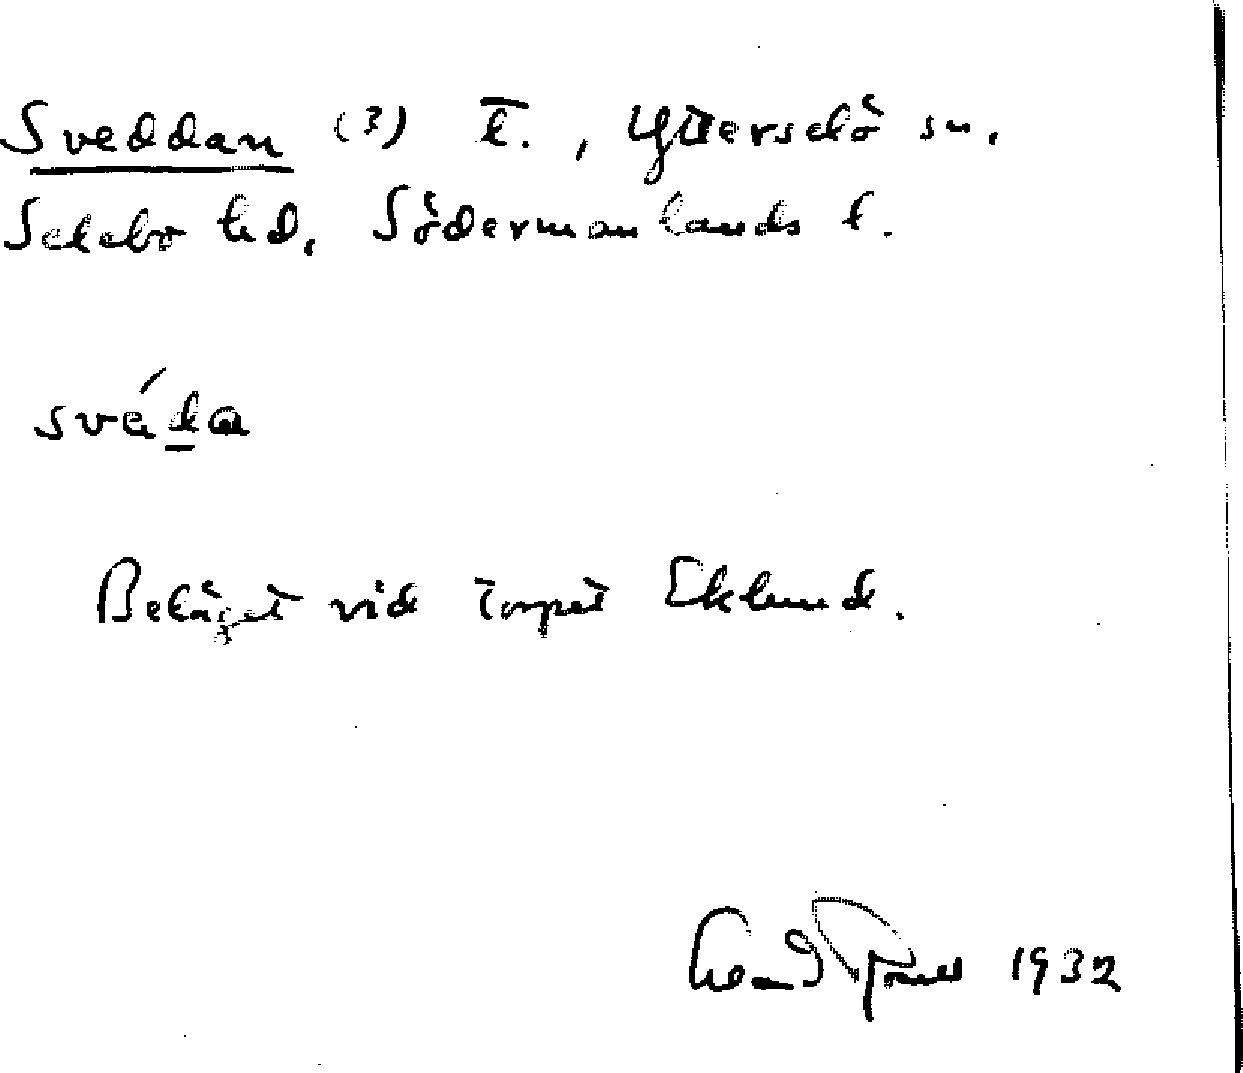 Sveddan (?) t., Ytterselö sn.
Selebo hd. Södermanlands l.
svéda
Beläget vid torpet Eklund.
1932